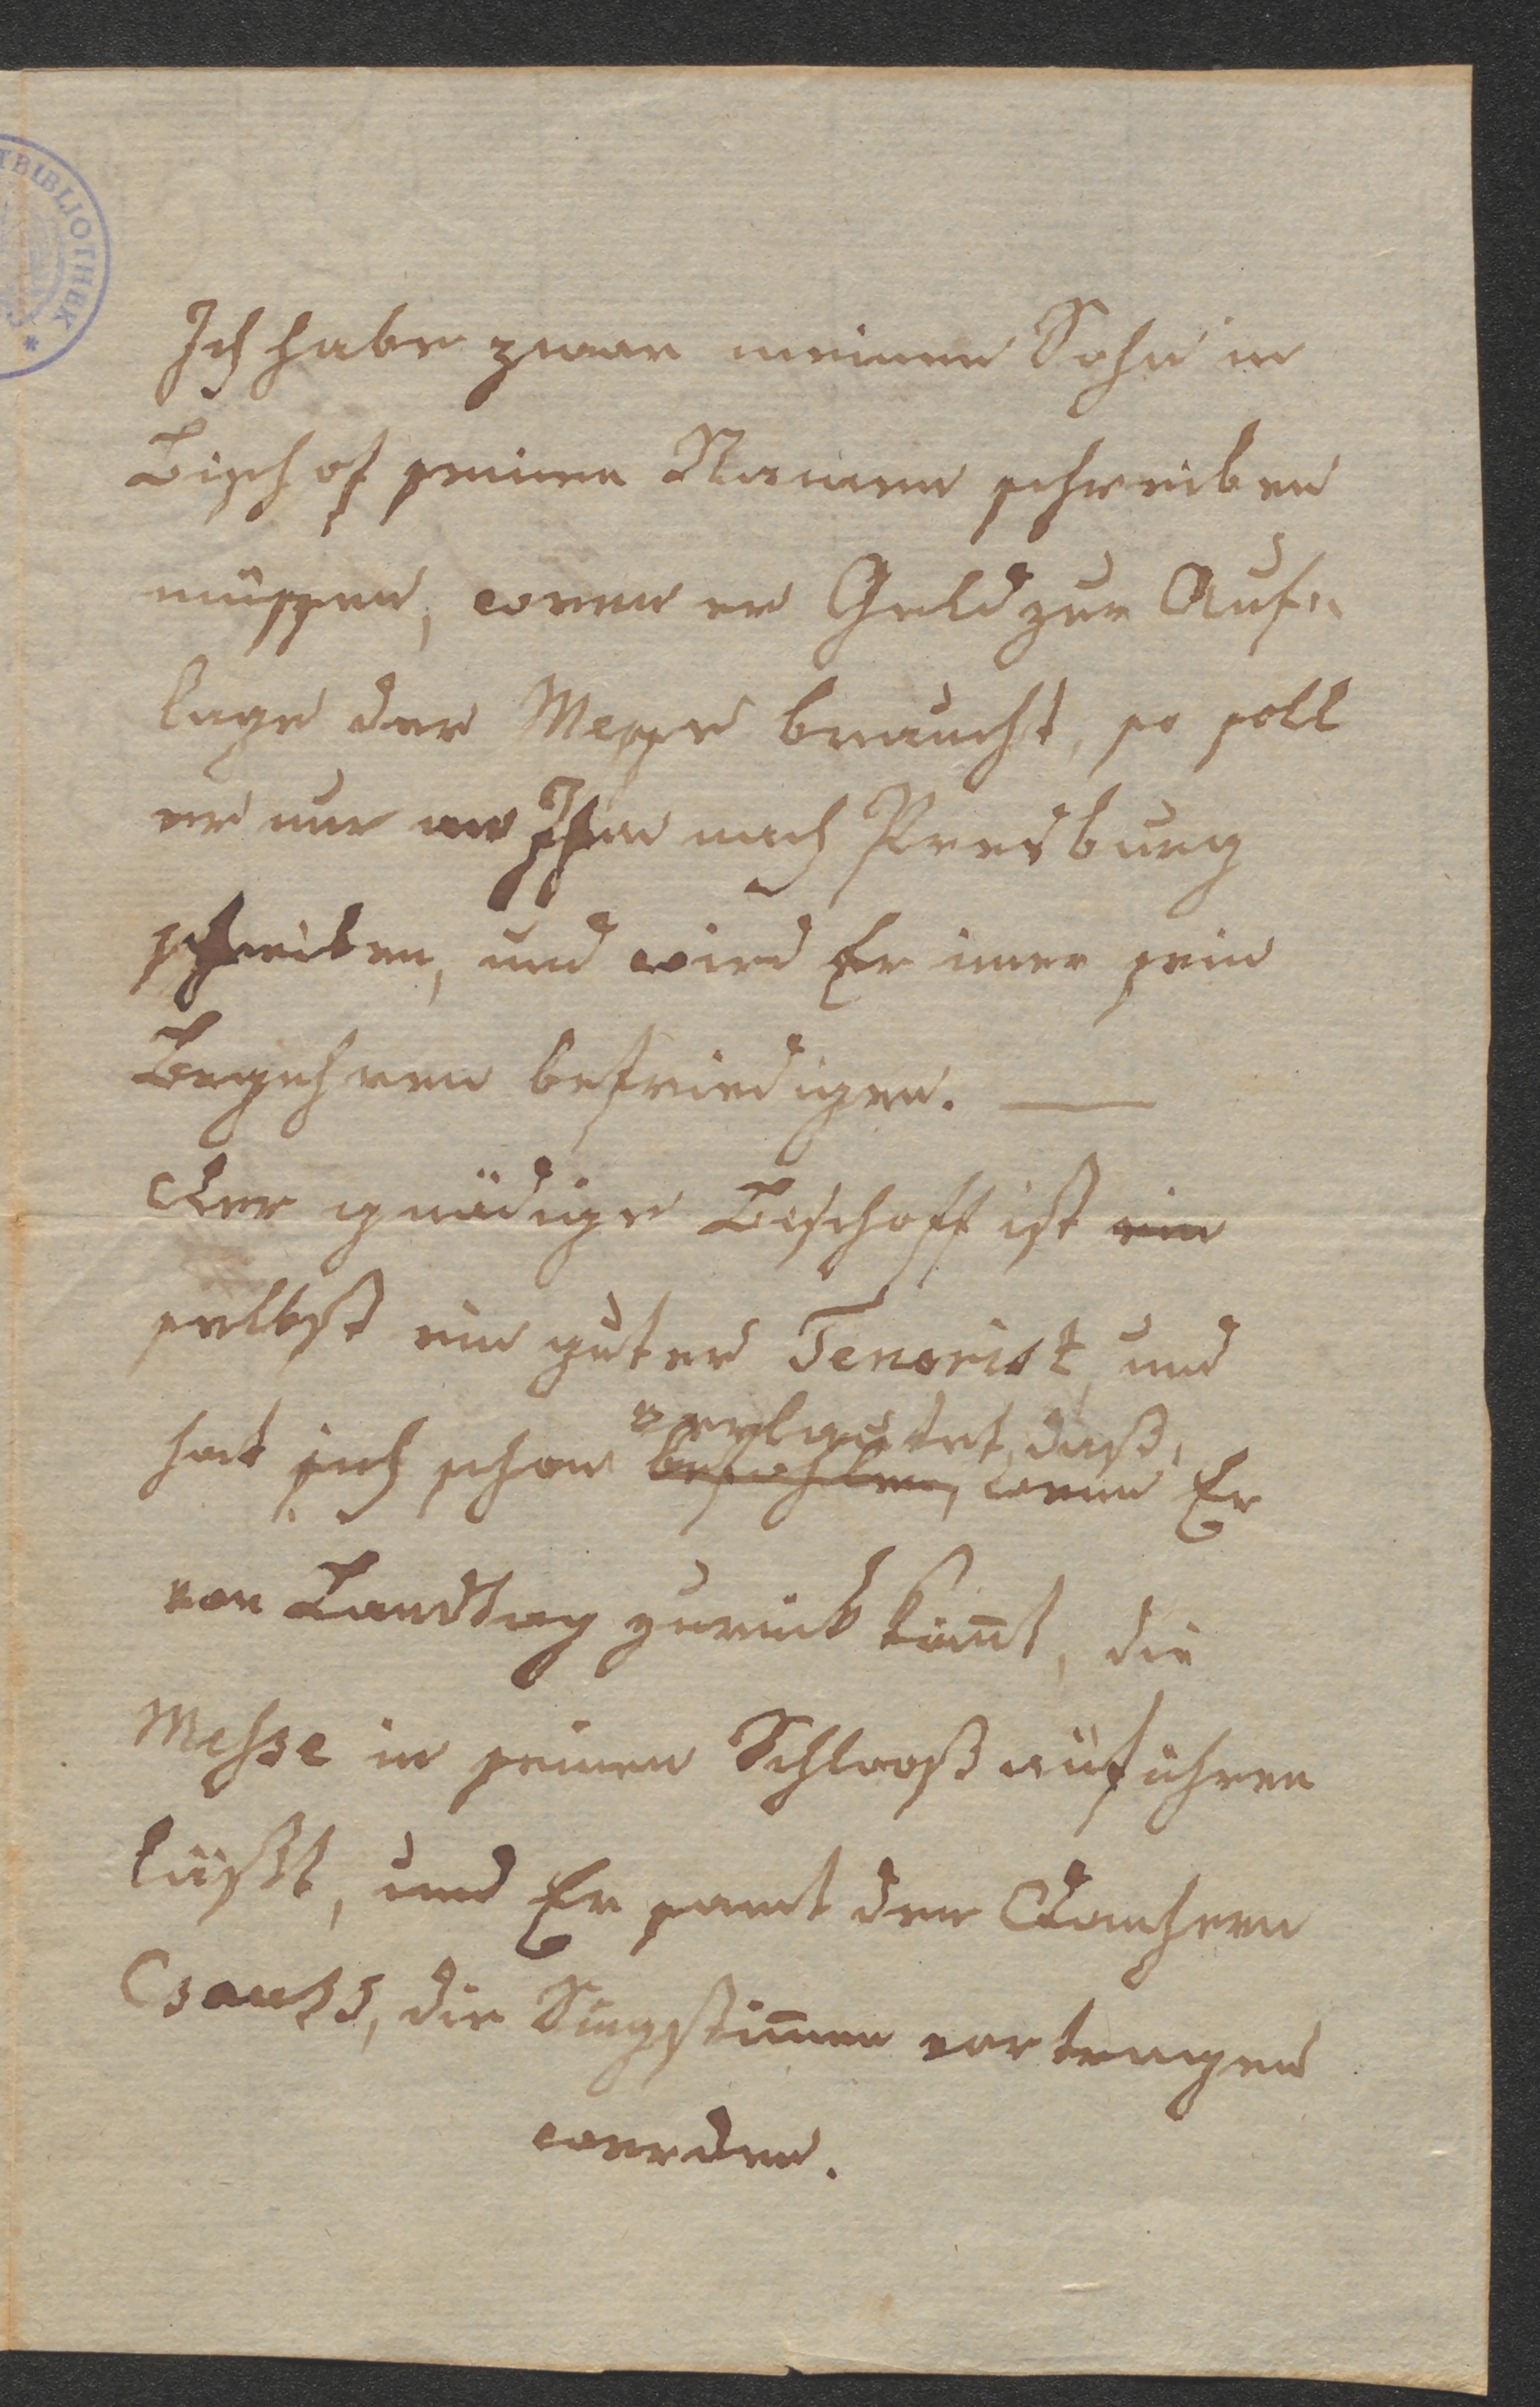 TBIBLIOTHEK *
Ich habe zwar meinen Sohn in
Bischof seinen Namen schreiben
müssen, wenn er Geld zur Auf=
lage der Messe braucht, so soll
er nur an Ihn nach Presburg
schreiben, und wird Er imer sein
Begehren befriedigen. —
Der gnädige Bischoff ist ein
selbst ein guter Tenorist, und
verlautet, daß,
hat sich schon befohlen, wenn Er
von Landtag zurück kom̅t, die
Messe in seinen Schlooß aufführen
läßt, und Er samt den Domhern
die Singstim̅en vortragen
werden.